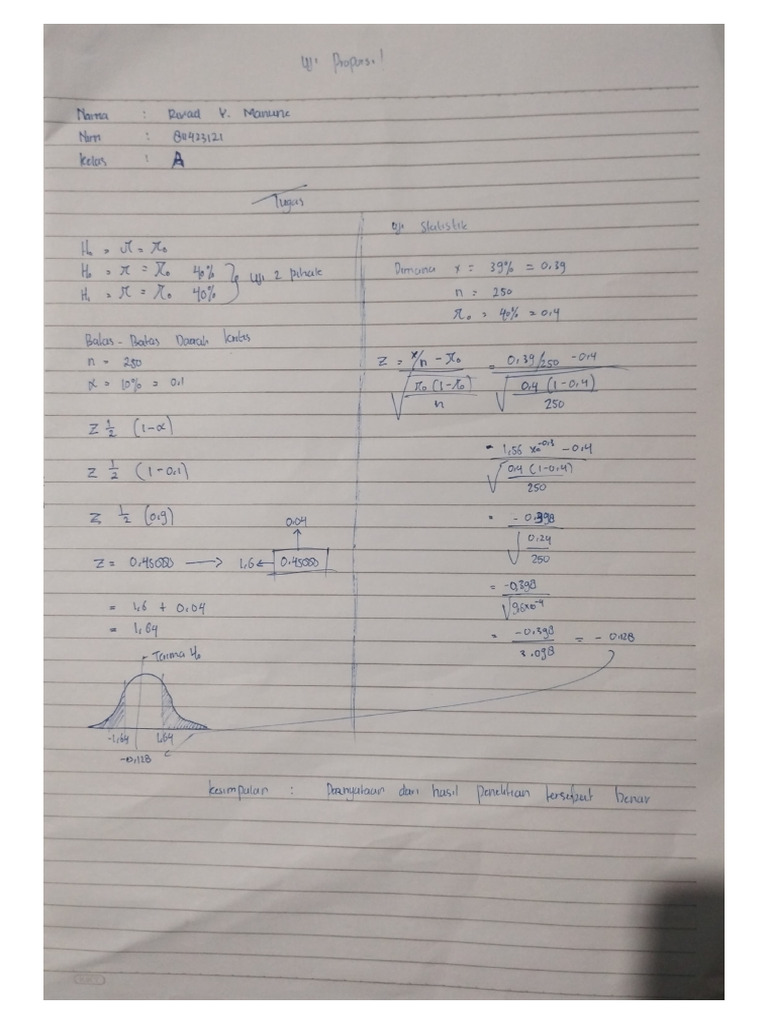 Uji Proporsi!
Nama : Rivad Y. Manune
Nim : 80423121
Kelas : A
Tugas
H₀ = π = π₀
H₀ = π = π₀ 40%
H₁ = π = π₀ 40%
Uji 2 pihak
Batas-Batas Daerah kritis
n = 250
α = 10% = 0.1
Z ½ (1-α)
Z ½ (1-0.1)
Z ½ (0.9)
0.04
Z = 0.45000 → 1,6 ← 0.45000
= 1,6 + 0.04
= 1,64
Terima H₀
-1,64 1,64
-0,128
Uji Statistik
Dimana x = 39% = 0.39
n = 250
π₀ = 40% = 0.4
Z = x/n - π₀ = 0,39/250 - 0.4
√ π₀ (1-π₀) √ 0.4 (1-0.4)
n 250
= 1,56 x10⁻⁰·³ - 0.4
√ 0.4 (1-0.4)
250
= -0.398
√ 0.24
250
= -0,398
√ 9,6x10⁻⁴
= -0.398 = -0.128
3.098
kesimpulan : Pernyataan dari hasil penelitian tersebut benar